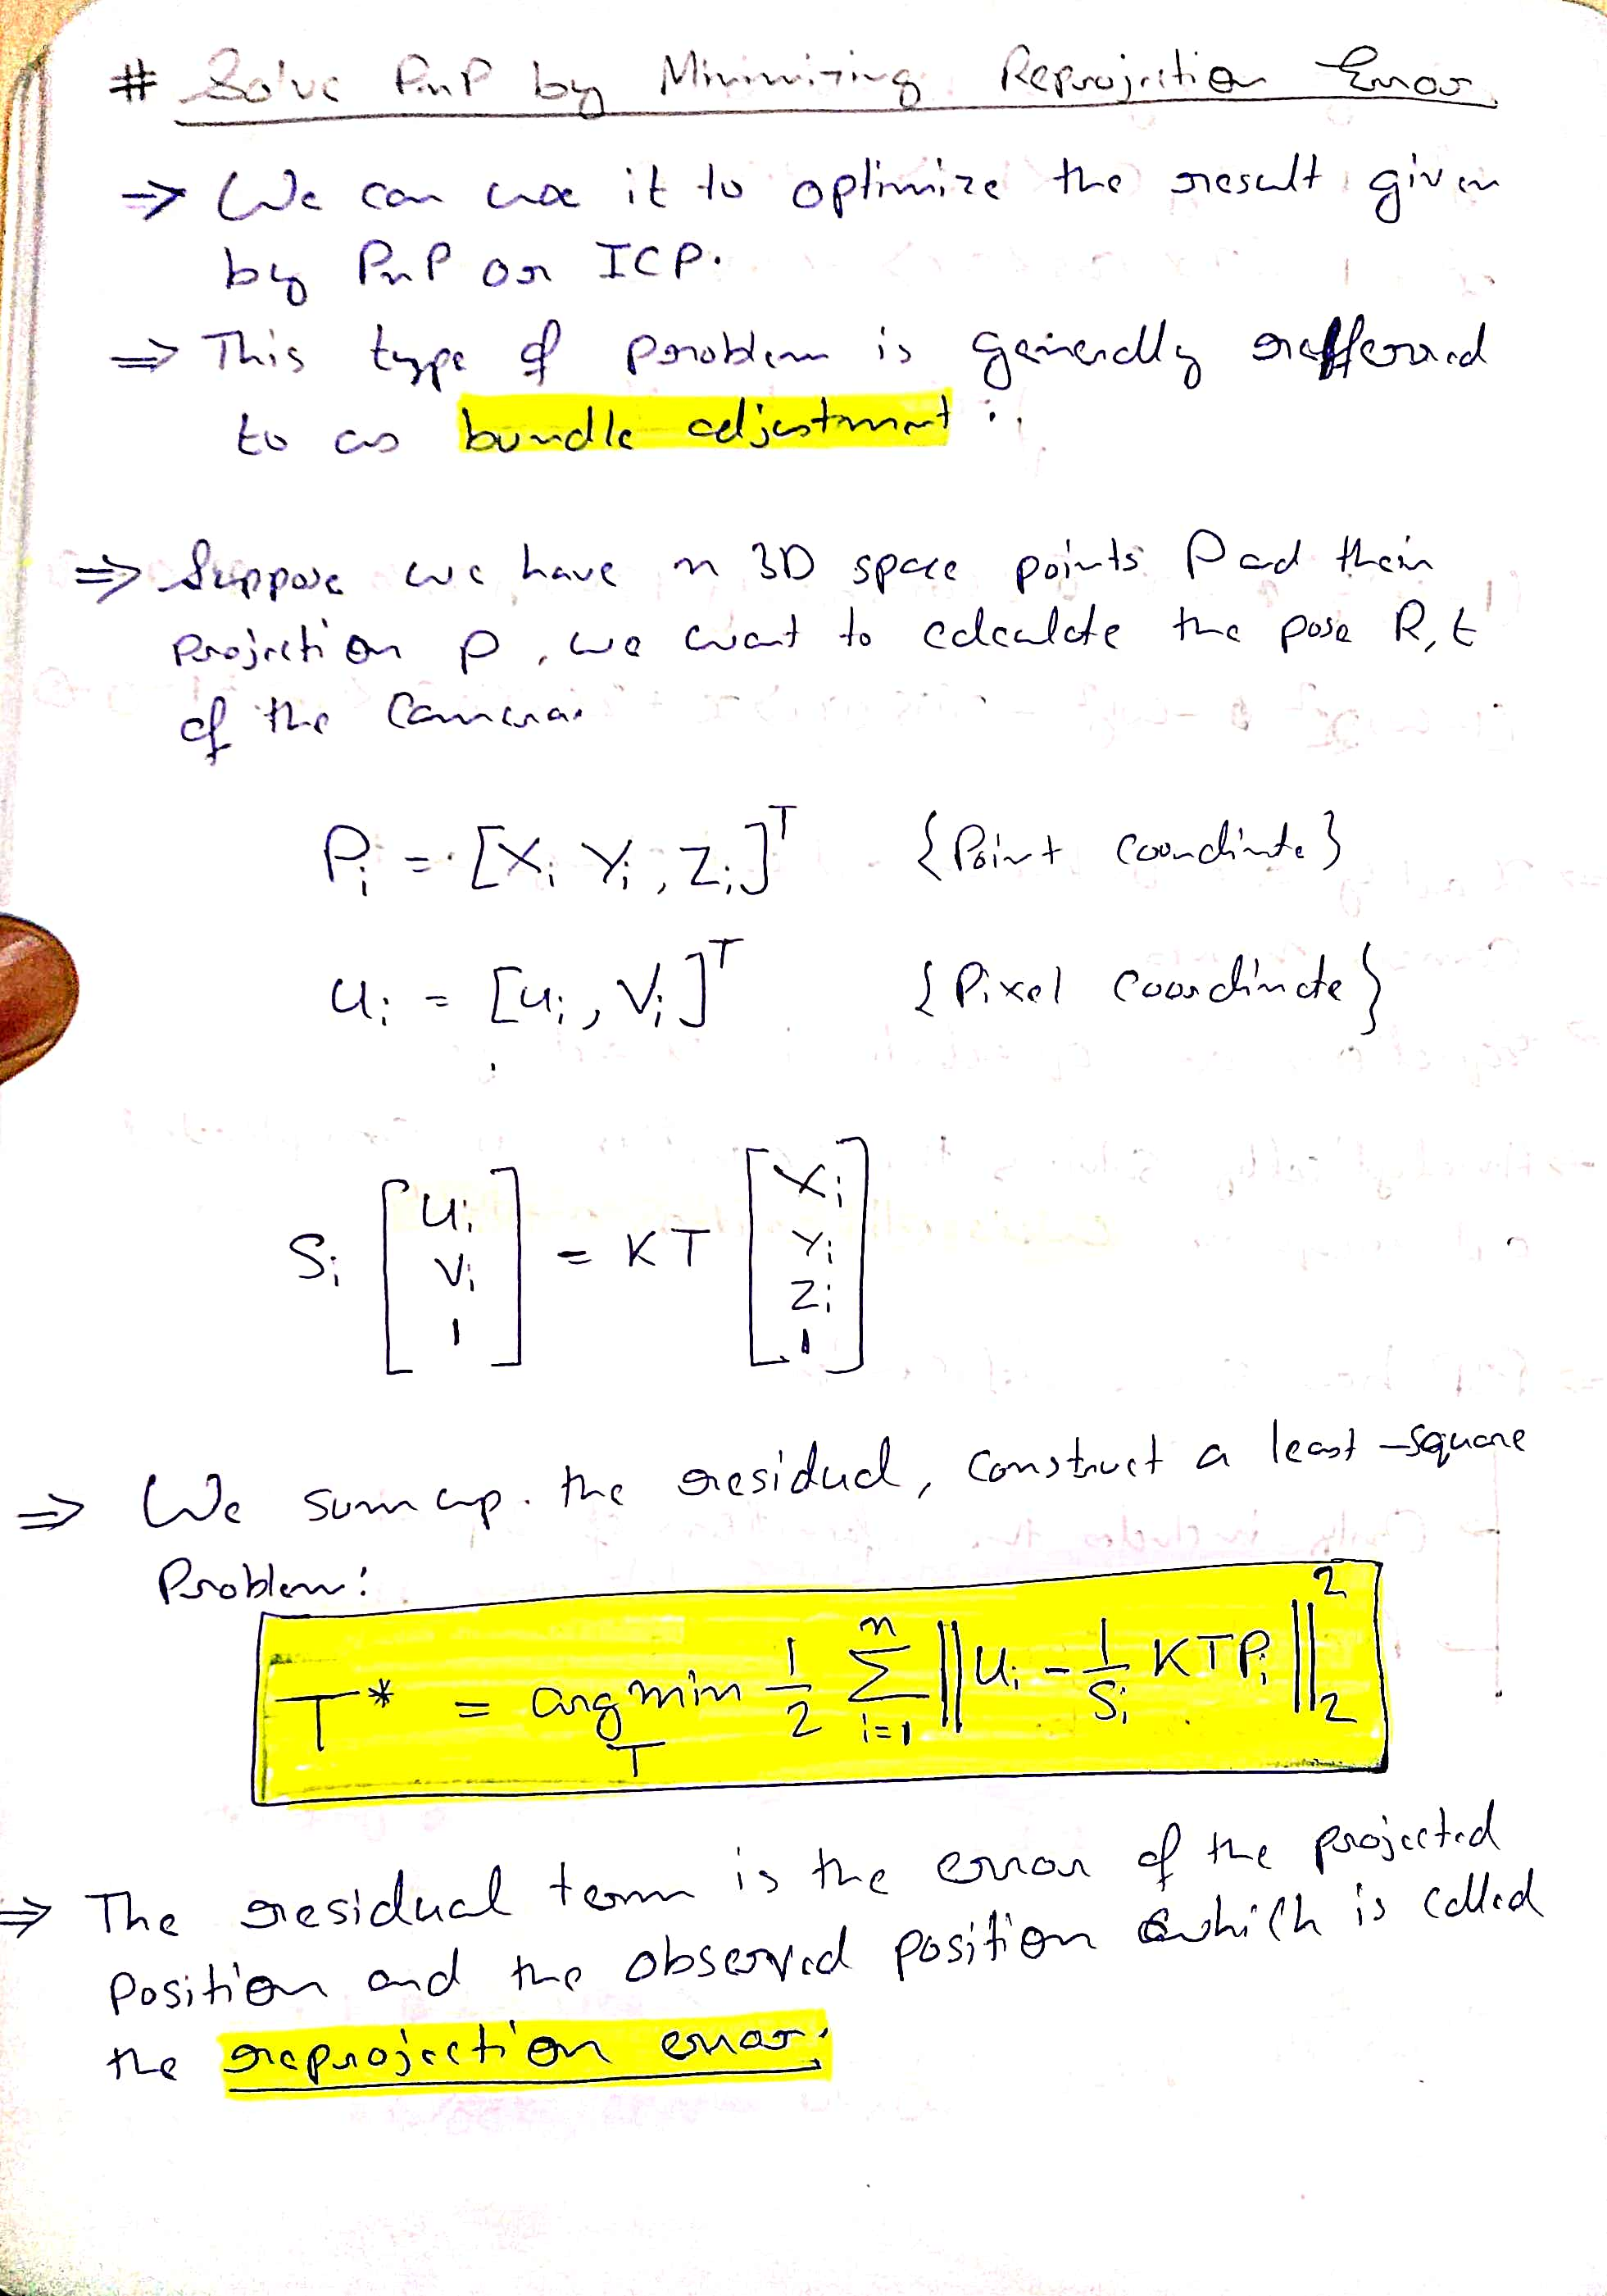 # Solve PnP by Minimizing Reprojection Error
⇒ We can use it to optimize the result given
by PnP or ICP.
⇒ This type of problem is generally refferred
to as bundle adjustment.
⇒ Suppose we have n 3D space points P ad their
Projection p, we want to calculate the pose R, t
of the Camera.
Pi = [Xi Yi, Zi]^T {Point coordinate}
ui = [ui, vi]^T {Pixel coordinate}
Si [ui vi 1] = KT [Xi Yi Zi 1]
⇒ We sum up the residual, construct a least-square
Problem:
T* = arg min_T 1/2 Σ_{i=1}^{n} ||ui - 1/Si KTPi||_2^2
⇒ The residual term is the error of the projected
Position and the observed position which is called
the reprojection error.